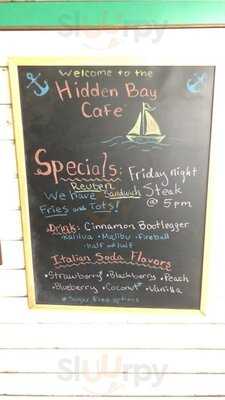 Welcome to the
Hidden Bay
Cafe
Specials: Friday night
Reuben
Sandwich Steak
We have @ 5pm
Fries and Tots!
Drink: Cinnamon Bootlegger
Kahlua • Malibu • Fireball
half and half
Italian Soda Flavors
• Strawberry • Blackberry • Peach
• Blueberry • Coconut • Vanilla
* Sugar free options
Slurrpy
Slurrpy